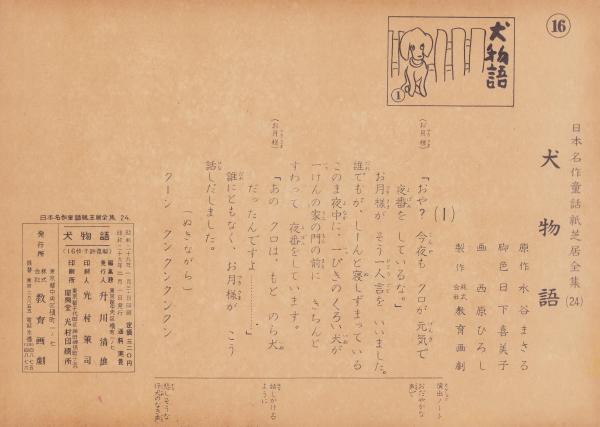 16
犬物語
1
日本名作童話紙芝居全集 (24)
犬物語
原作 水谷まさる
脚色 日下喜美子
画 西原ひろし
製作 株式会社 教育画劇
(1)
(お月様)
「おや? 今夜も クロが元気で
夜番を しているな。」
お月様が そう一人言を いいました。
誰でもが、しーんと寝しずまっている
このま夜中に、一ぴきのくろい犬が
一けんの家の門の前に きちんと
すわって 夜番をしています。
(お月様)
「あの クロは、もと のら犬
だったんですよ…………。」
誰にともなく、お月様が こう
話しだしました。
(ぬきながら)
クーン クンクンクンクン
演出ノート
おだやかな
声で
話しかける
ように
悲しそうな
仔犬のなき声
日本名作童話紙芝居全集 24.
犬物語
定價 三二〇円
送料 実費
編集兼発行人 升川清雄
印刷人 光村策司
印刷所 光村印刷所
発行所
東京都中央区
株式会社 教育画劇